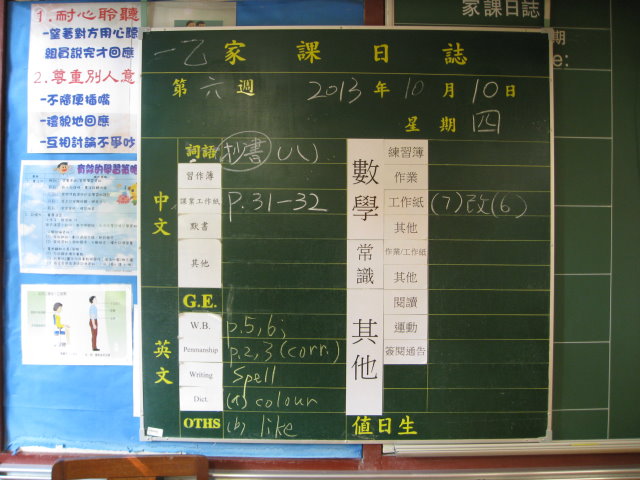 1.耐心聆聽
-望著對方用心聽
組員說完才回應
2.尊重別人意
-不隨便插嘴
-禮貌地回應
-互相討論不爭吵
有效的學習策略
家課日誌
期
e:
一乙家課日誌
第六週 2013年10月10日
星期四
中文
詞語 抄書(八)
習作簿
課業工作紙 P.31-32
默書
其他
英文
G.E.
W.B. p.5,6;
Penmanship p.2,3(corr.)
Writing Spell
Dict. (a) colour
OTHS (b) like
數學
練習簿
作業
工作紙 (7)改(6)
其他
常識
作業/工作紙
其他
其他
閱讀
運動
簽閱通告
值日生